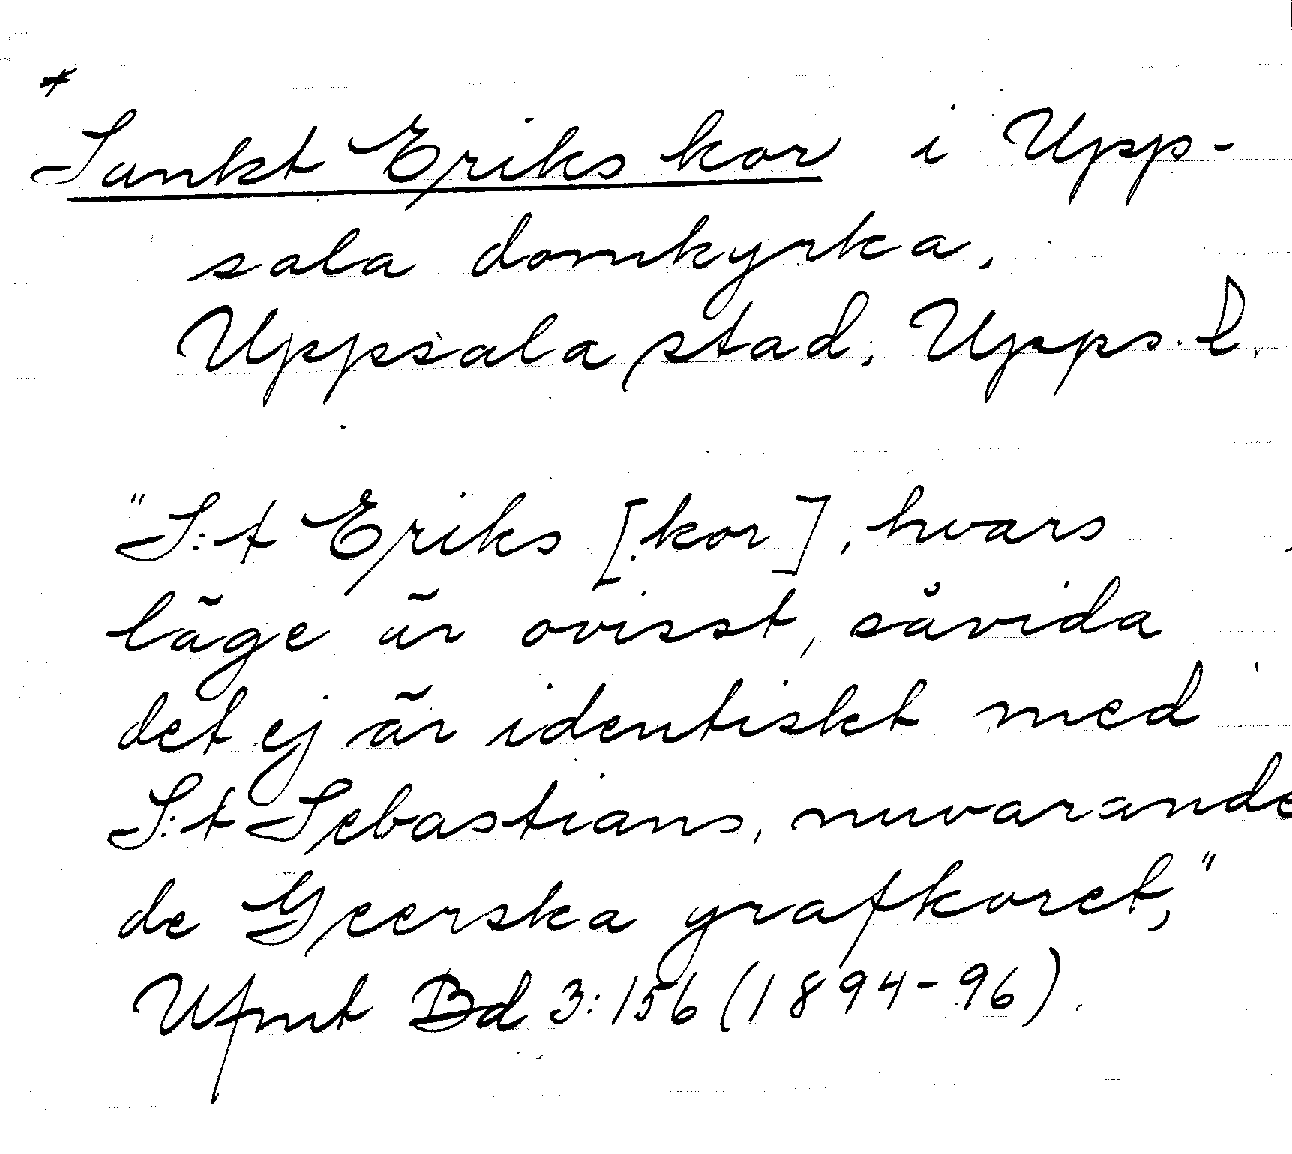 * Sankt Eriks kor i Upp-
sala domkyrka,
Uppsala stad, Upps. l.
"S:t Eriks [kor], hvars
läge är ovisst, såvida
det ej är identiskt med
S:t Sebastians, nuvarande
de Geerska grafkoret,"
Ufmt Bd 3:156 (1894-96).